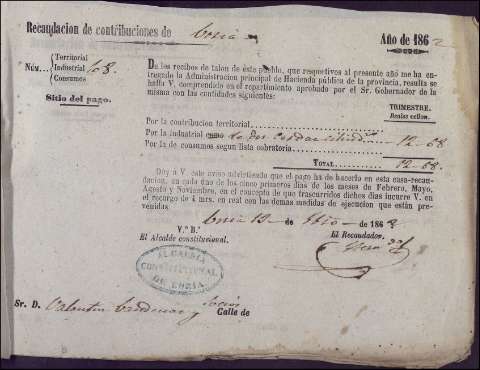 Recaudacion de contribuciones de Coria Año de 1862
Núm. Territorial Industrial Consumos 68.
Sitio del pago.
De los recibos de talon de este pueblo, que respectivos al presente año me ha en-
tregado la Administracion principal de Hacienda pública de la provincia, resulta se
halla V. comprendido en el repartimiento aprobado por el Sr. Gobernador de la
misma con las cantidades siguientes:
TRIMESTRE.
Reales vellon.
Por la contribucion territorial
Por la industrial como 12-68
Por la de consumos segun lista cobratoria
TOTAL 12-68.
Doy á V. este aviso advirtiendo que el pago ha de hacerlo en esta casa-recau-
dacion, en cada uno de los cinco primeros dias de los meses de Febrero, Mayo,
Agosto y Noviembre, en el concepto de que trascurridos dichos dias incurre V. en
el recargo de 4 mrs. en real con las demas medidas de ejecucion que están pre-
venidas.
Coria 12 de de 186
V.° B.°
El Alcalde constitucional.
El Recaudador.
ALCALDIA
CONSTITUCIONAL
DE CORIA.
Sr. D. Valentin y Socios Calle de